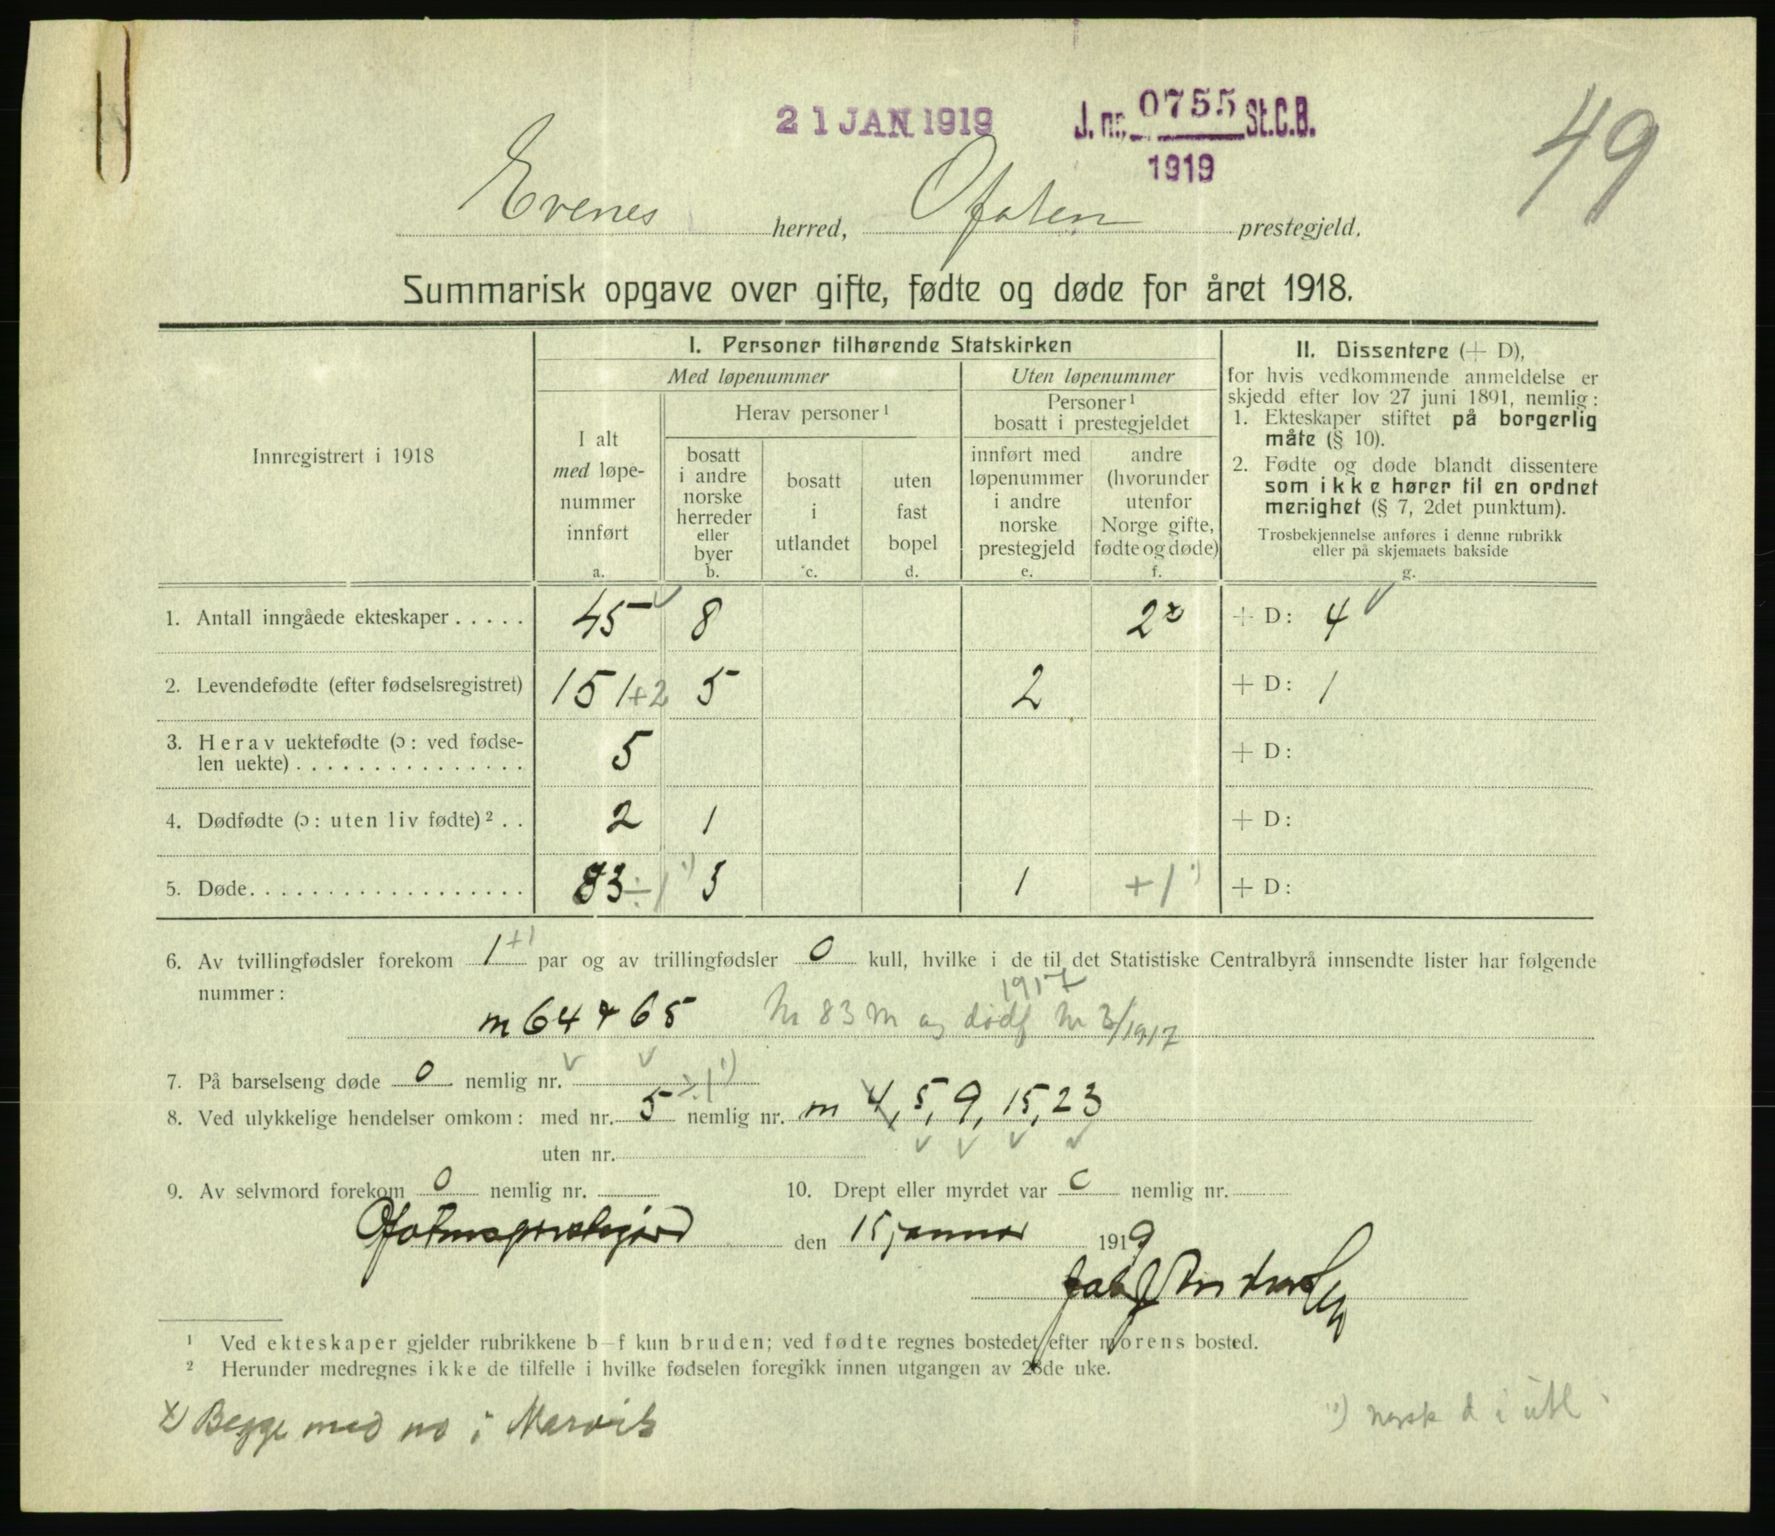 21 JAN 1919
J. nr. 0755 St.C.B.
1919
49
Evenes herred, Ofoten prestegjeld.
Summarisk opgave over gifte, fødte og døde for året 1918.
Innregistrert i 1918
I. Personer tilhørende Statskirken
Med løpenummer
Uten løpenummer
I alt
med løpe-
nummer
innført
a.
Herav personer¹
bosatt
i andre
norske
herreder
eller
byer
b.
bosatt
i
utlandet
c.
uten
fast
bopel
d.
Personer¹
bosatt i prestegjeldet
innført med
løpenummer
i andre
norske
prestegjeld
e.
andre
(hvorunder
utenfor
Norge gifte,
fødte og døde)
f.
II. Dissentere (+ D),
for hvis vedkommende anmeldelse er
skjedd efter lov 27 juni 1891, nemlig:
1. Ekteskaper stiftet på borgerlig
måte (§ 10).
2. Fødte og døde blandt dissentere
som ikke hører til en ordnet
menighet (§ 7, 2det punktum).
Trosbekjennelse anføres i denne rubrikk
eller på skjemaets bakside
g.
1. Antall inngåede ekteskaper..... 45 ✓ 8 2x + D: 4 ✓
2. Levendefødte (efter fødselsregistret) 151+2 5 2 + D: 1
3. Herav uektefødte (ɔ: ved fødse-
len uekte)............... 5 + D:
4. Dødfødte (ɔ: uten liv fødte)².. 2 1 + D:
5. Døde.................. 83÷1¹) 5 1 +1¹) + D:
6. Av tvillingfødsler forekom 1+1 par og av trillingfødsler 0 kull, hvilke i de til det Statistiske Centralbyrå innsendte lister har følgende
nummer:
1917
m 64 + 65 Nr 83 m og dødf Nr 3/1917
7. På barselseng døde 0 nemlig nr.
8. Ved ulykkelige hendelser omkom: med nr. 5 ÷1¹) nemlig nr. m 4, 5, 9, 15, 23
uten nr.
9. Av selvmord forekom 0 nemlig nr.
10. Drept eller myrdet var 0 nemlig nr.
Ofotens prestegård den 15 januar 1919
¹ Ved ekteskaper gjelder rubrikkene b—f kun bruden; ved fødte regnes bostedet efter morens bosted.
² Herunder medregnes ikke de tilfelle i hvilke fødselen foregikk innen utgangen av 28de uke.
x) Begge med no i Narvik
¹) norsk d i utl